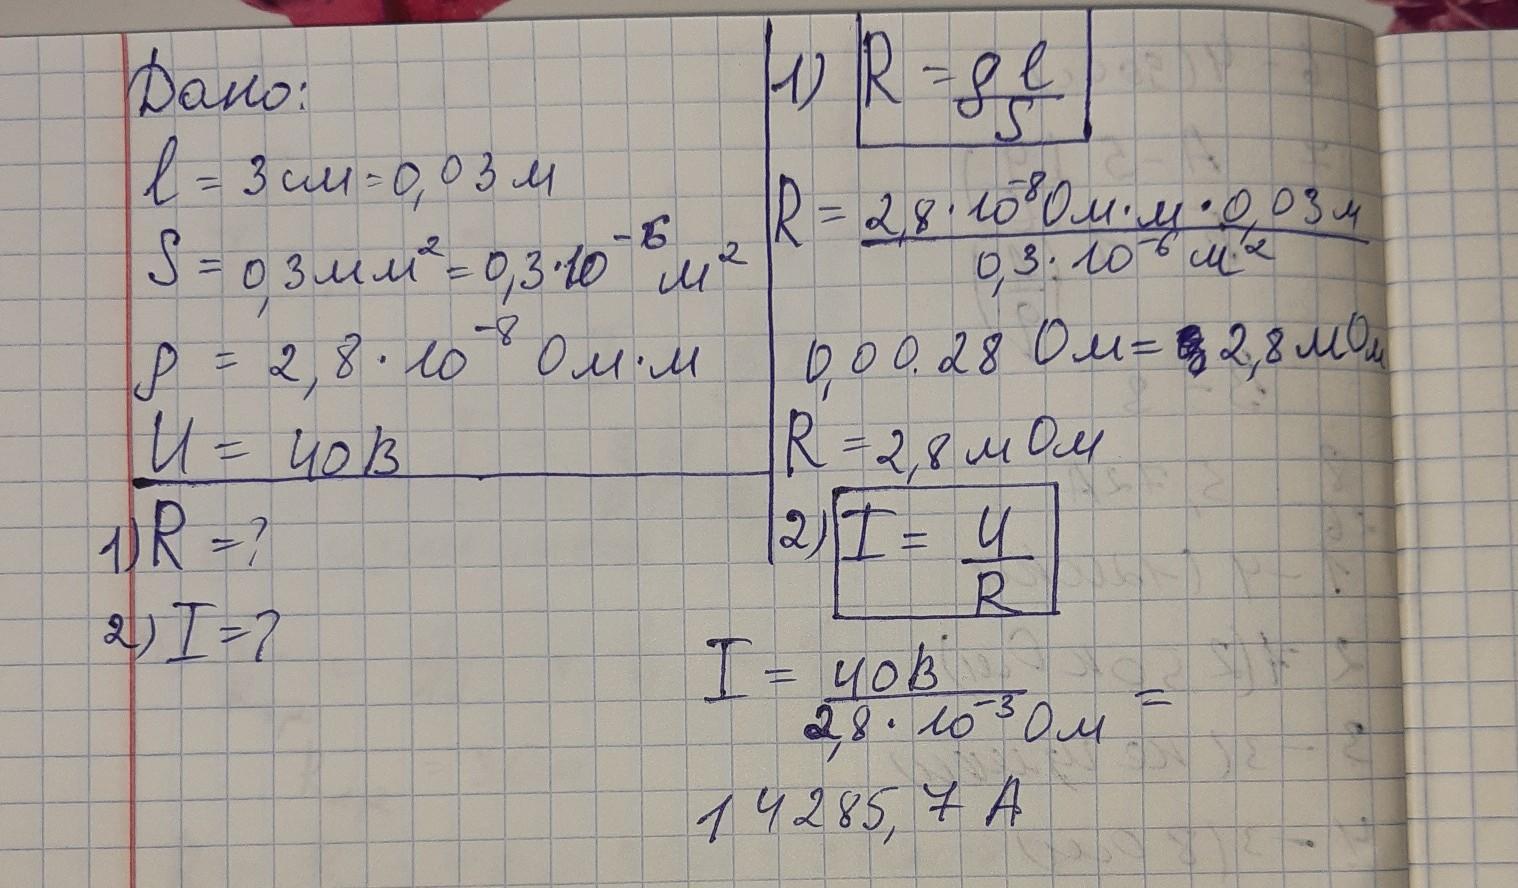 Дано:
l = 3 см = 0,03 м
S = 0,3 мм² = 0,3·10⁻⁶ м²
ρ = 2,8·10⁻⁸ Ом·м
U = 40В
1) R = ?
2) I = ?
1) R = ρl/S
R = 2,8·10⁻⁸ Ом·м·0,03м / 0,3·10⁻⁶ м²
0,00.28 Ом = 2,8 мОм
R = 2,8 мОм
2) I = U/R
I = 40В / 2,8·10⁻³ Ом =
14285,7 А